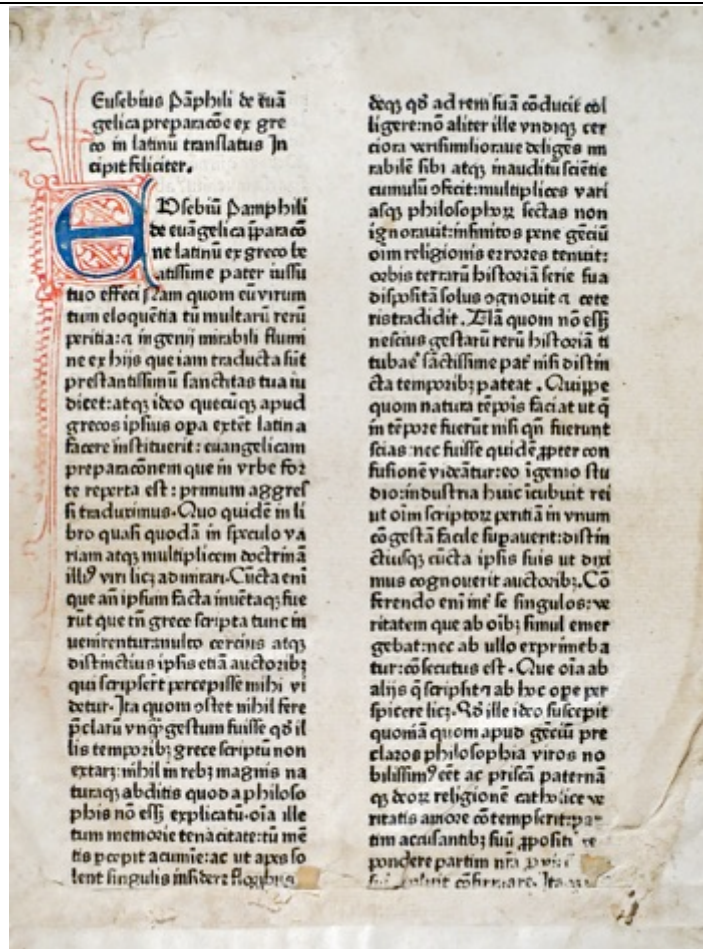 Eusebius Pāphili de euā
gelica preparacōe ex gre
co in latinū translatus In
cipit feliciter.
EUsebiū Pamphili
de euāgelica p̄paracō
ne latinū ex greco be
atissime pater iussu
tuo effeci nam quom eū virum
tum eloquētia tū multarū rerū
peritia: ⁊ ingenij mirabili flumi
ne ex hijs que iam traducta sūt
prestantissimū sanctitas tua iu
dicet: atqꝫ ideo quecūqꝫ apud
grecos ipsius opa extēt latina
facere instituerit: euangelicam
preparacōnem que in vrbe for
te reperta est: primum aggres
si traduximus. Quo quidē in li
bro quasi quodā in speculo va
riam atqꝫ multiplicem doctrinā
illiꝰ viri licꝫ admirari. Cūcta eni
que an̄ ipsum facta inuētaqꝫ fue
rūt que tn̄ grece scripta tunc in
uenirentur: multo cercius atqꝫ
distinctius ipsis etiā auctoribꝫ
qui scripsert percepisse mihi vi
detur. Ita quom ɔstet nihil fere
p̄clarū vnqꝫ gestum fuisse qd̄ il
lis temporibꝫ grece scriptū non
extarꝫ: nihil in rebꝫ magnis na
turaqꝫ abditis quod a philoso
phis nō essꝫ explicatū. oīa ille
tum memorie tenacitate: tū mē
tis pcepit acumīe: ac ut apes so
lent singulis insidere floribus
deqꝫ qd̄ ad rem suā cōducit col
ligere: nō aliter ille vndiqꝫ cer
ciora verisimilioraue deliges mi
rabilē sibi atqꝫ inauditū sciētie
cumulū ɔfecit: multiplices vari
asqꝫ philosophoꝝ sectas non
ignorauit: infinitos pene gēciū
oīm religionis errores tenuit:
orbis terrarū historiā serie sua
dispositā solus ɔgnouit ⁊ cete
ris tradidit. Nā quom nō essꝫ
nescius gestarū rerū historiā ti
tubaē sāctissime pat̄ nisi distin
cta temporibꝫ pateat. Quippe
quom natura tēpois faciat ut q̄
in tēpore fuerūt nisi qn̄ fuerunt
scias: nec fuisse quidē ꝓpter con
fusionē videātur: eo īgenio stu
dio: industria huic īcubuit rei
ut oīm scriptoꝝ peritiā in vnum
cōgestā facile supauerit: distin
ctiusqꝫ cūcta ipsis suis ut dixi
mus cognouerit auctoribꝫ. Cō
ferendo eni int̄ se singulos: ve
ritatem que ab oībꝫ simul emer
gebat: nec ab ullo exprimeba
tur: cōsecutus est. Que oīa ab
alijs q̄ scripsit ⁊ ab hoc ope per
spicere licꝫ. Qd̄ ille ideo suscepit
quoniā quom apud gēciū pre
claros philosophia viros no
bilissimꝰ eēt ac priscā paternā
qꝫ deoꝝ religionē catholice ve
ritatis amore cōtempserit: par
tim accusantibꝫ suū ꝓpositū re
spondere partim nrā
cōfirmare. Ita